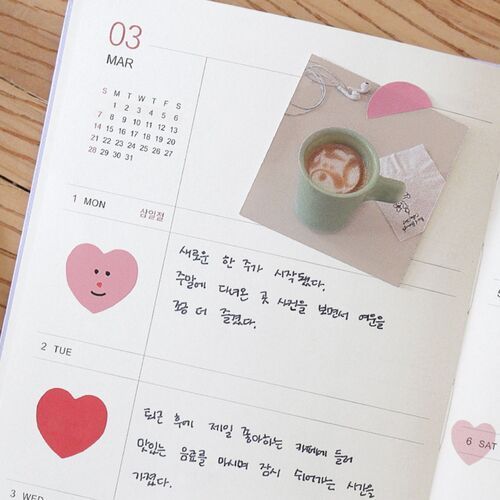 03
MAR
S M T W T F S
1 2 3 4 5 6
7 8 9 10 11 12 13
14 15 16 17 18 19 20
21 22 23 24 25 26 27
28 29 30 31
1 MON 삼일절
새로운 한 주가 시작됐다.
주말에 다녀온 곳 사진을 보면서 여운을
좀 더 즐겼다.
2 TUE
퇴근 후에 제일 좋아하는 카페에 들러
맛있는 음료를 마시며 잠시 쉬어가는 시간을
가졌다.
3 WED
6 SAT